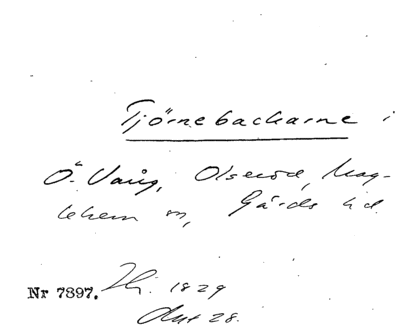 Tjörnebackarne i
Ö. Vång, Olseröd, Mag-
lehem sn, Gärds hd.
Nr 7897. 1829
Akt 28.